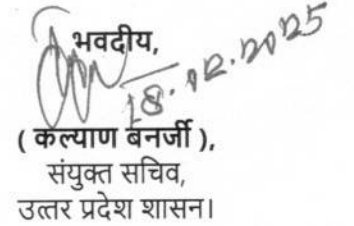 भवदीय,
18.12.2025
( कल्याण बनर्जी ),
संयुक्त सचिव,
उत्तर प्रदेश शासन।